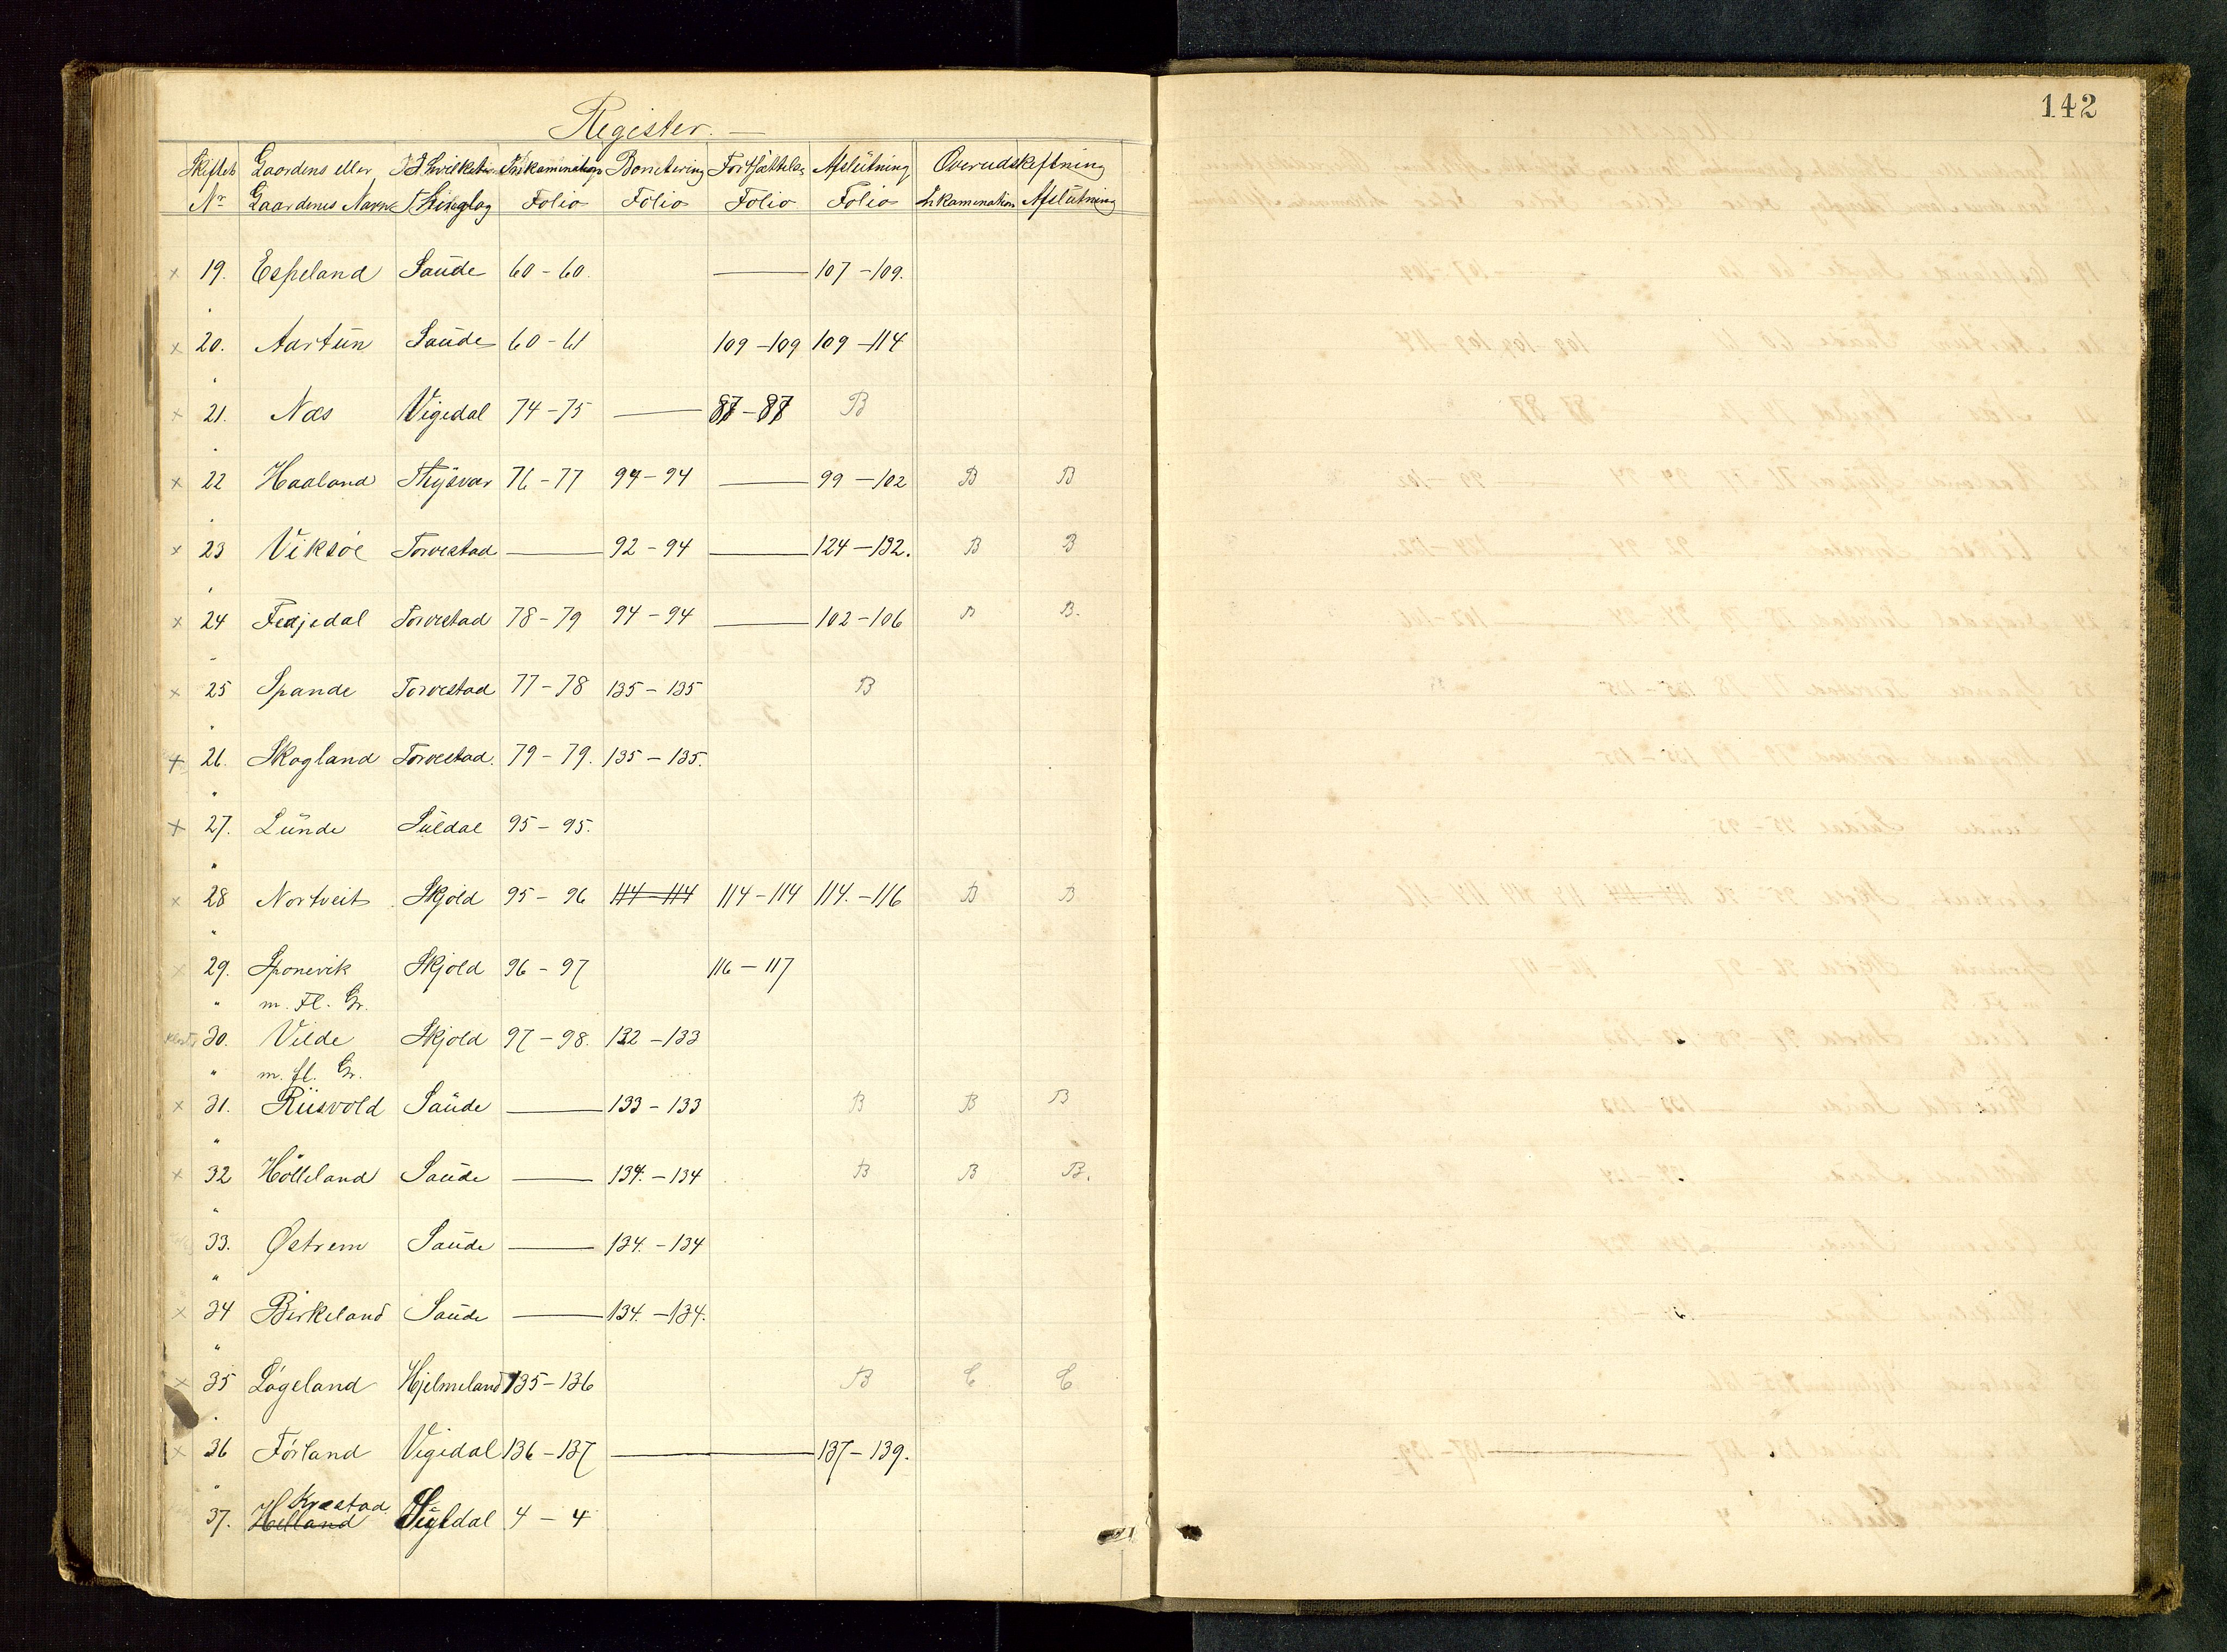 142
Register. —
Skiftets Gaardens eller I hvilket Inkamination Bonitering Fortsættels Afslütning Overudskiftning
Nr Gaardenes Navne Thinglag Folio Folio Folio Folio Inkamination Afslütning
x 19. Espeland Saüde 60 - 60. — 107 - 109.
x 20. Aartün Saüde 60 - 61 109 - 109 109 - 114
x 21. Næs Vigedal 74 - 75 — 87 - 87 B
x 22 Haaland Thysvær 76 - 77 94 - 94 — 99 - 102 B B
x 23 Viksöe Torvestad — 92 - 94 — 124 - 132. B B
x 24 Fedjedal Torvestad 78 - 79 94 - 94 — 102 - 106 B B.
x 25 Spande Torvestad 77 - 78 135 - 135 B
x 26. Skogland Torvestad. 79 - 79. 135 - 135.
x 27. Lünde Süldal 95 - 95.
x 28 Nortveit Skjold 95 - 96 114 - 114 114 - 114 114. - 116 B B
x 29. Sponevik Skjold 96 - 97 116 - 117
" m. Fl. Gr.
30. Vilde Skjold 97 - 98. 132 - 133
" m. fl. Gr.
x 31. Riisvold Saüde — 133 - 133 B B B
x 32 Hölleland Saüde — 134. - 134 B B B.
33. Østrem Saüde — 134. - 134
x 34 Birkeland Saüde — 134. - 134.
x 35 Lögeland Hjelmeland 135 - 136 B C C
x 36 Förland Vigedal 136 - 137 — 137 - 139.
Kvæstad
37. Helland Süldal 4 - 4